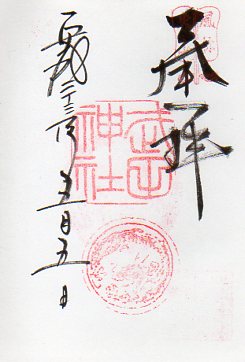 奉拝
武田
神社
平成二十三年五月五日